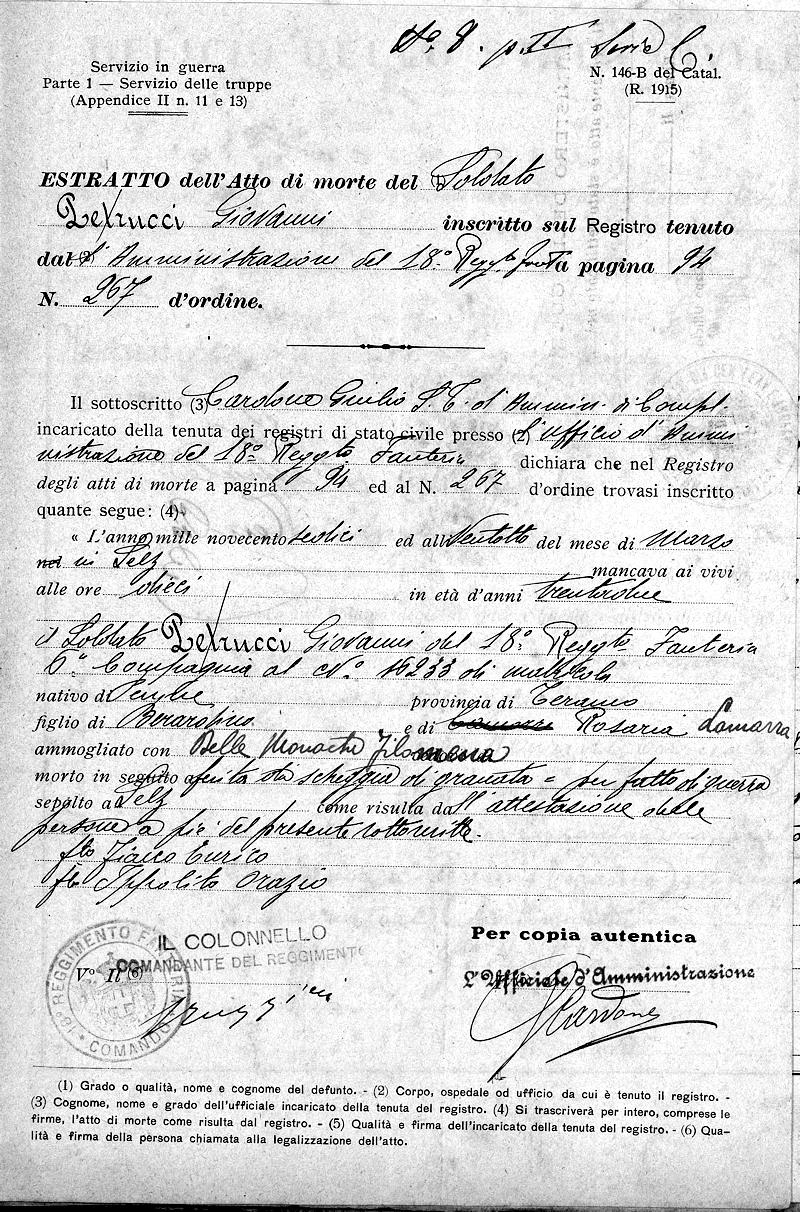 N.º 8. p. II Serie C.
Servizio in guerra
Parte 1 — Servizio delle truppe
(Appendice II n. 11 e 13)
N. 146-B del Catal.
(R. 1915)
ESTRATTO dell'Atto di morte del (1) Soldato
Petrucci Giovanni inscritto sul Registro tenuto
dal (2) l'Amministrazione del 18º Reggto fant. a pagina 94
N. 267 d'ordine.
Il sottoscritto (3) Cardone Giulio S. T. d'Ammin. di Compl.
incaricato della tenuta dei registri di stato civile presso (2) l'ufficio d'Ammi
nistrazione del 18º Reggto Fanteria dichiara che nel Registro
degli atti di morte a pagina 94 ed al N. 267 d'ordine trovasi inscritto
quante segue: (4)
« L'anno mille novecento sedici ed all ventotto del mese di Marzo
nel in Selz mancava ai vivi
alle ore dieci in età d'anni trentadue
il Soldato Petrucci Giovanni del 18º Reggto Fanteria
6ª Compagnia al Nº 16233 di matricola
nativo di Penne provincia di Teramo
figlio di Berardino e di Rosaria Lamarra
ammogliato con Delle Monache Filomena
morto in seguito a ferita da scheggia di granata = per fatto di guerra
sepolto a Selz come risulta dall'attestazione delle
persone a piè del presente sottoscritte.
fto Fiano Enrico
fto Ippolito Orazio
IL COLONNELLO
COMANDANTE DEL REGGIMENTO
Vº Il (6)
18º REGGIMENTO FANTERIA * COMANDO *
Per copia autentica
L'Ufficiale d'Amministrazione
GCardone
(1) Grado o qualità, nome e cognome del defunto. - (2) Corpo, ospedale od ufficio da cui è tenuto il registro. -
(3) Cognome, nome e grado dell'ufficiale incaricato della tenuta del registro. (4) Si trascriverà per intero, comprese le
firme, l'atto di morte come risulta dal registro. - (5) Qualità e firma dell'incaricato della tenuta del registro. - (6) Qua-
lità e firma della persona chiamata alla legalizzazione dell'atto.